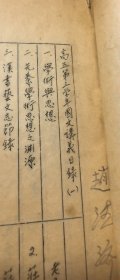 高三第二學年國文講義目錄(一)
一.學術與思想
二.先秦學術思想之淵源
三.漢書藝文志節錄
趙
老
2.莊